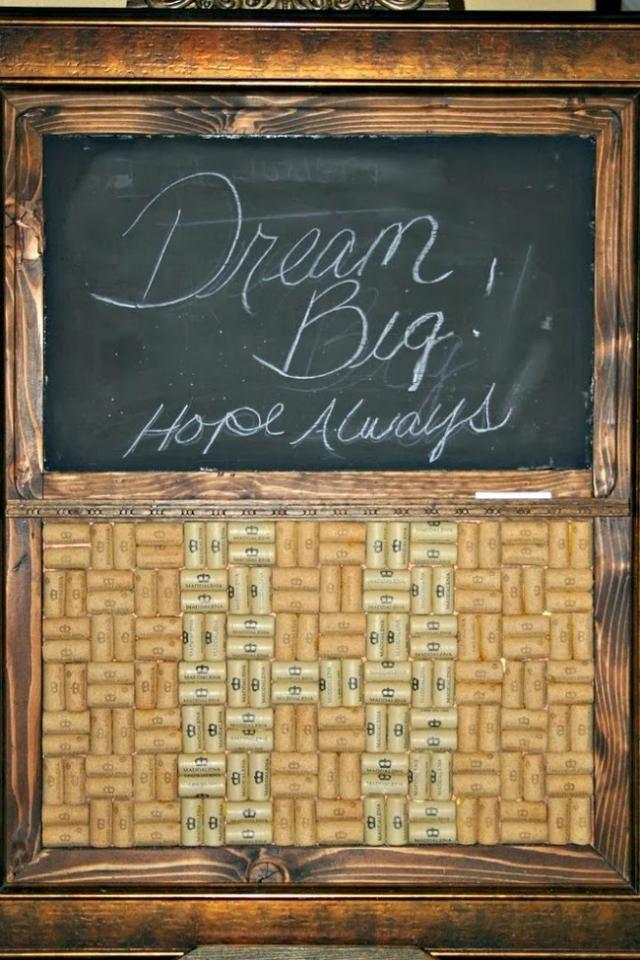 Dream
Big!
Hope Always
MADDALENA